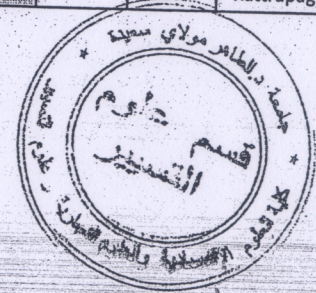 جامعة د. الطاهر مولاي سعيدة
كلية العلوم الإقتصادية والعلوم التجارية و علوم التسيير
قسم
علوم
التسيير